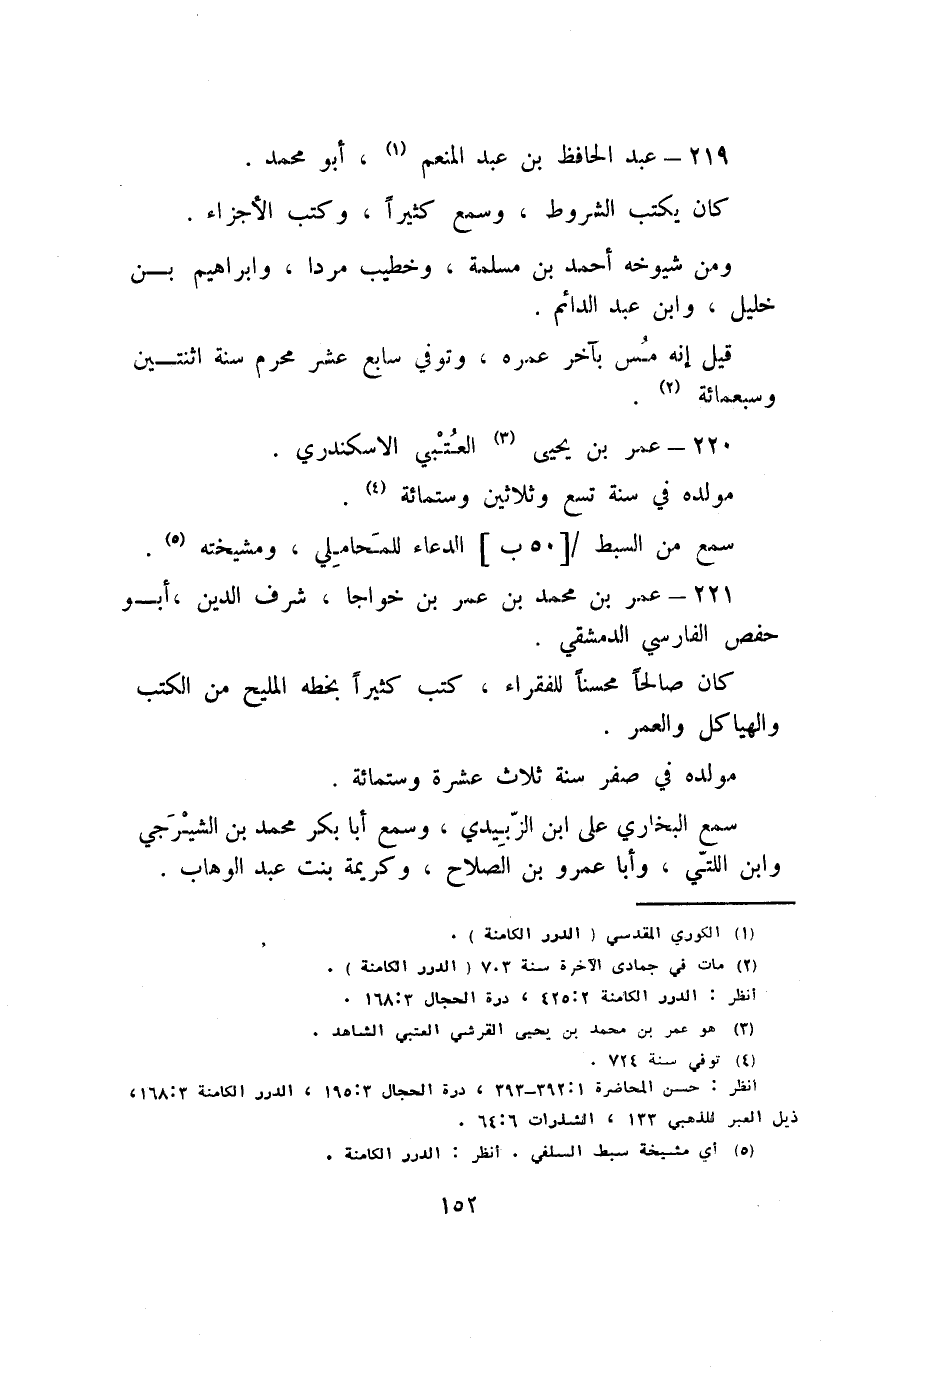 ٢١٩ – عبد الحافظ بن عبد المنعم (١) ، أبو محمد .
كان يكتب الشروط ، وسمع كثيراً ، وكتب الأجزاء .
ومن شيوخه أحمد بن مسلمة ، وخطيب مردا ، وابراهيم بـــن
خليل ، وابن عبد الدائم .
قيل إنه مُس بآخر عمره ، وتوفي سابع عشر محرم سنة اثنتـــين
وسبعمائة (٢) .
٢٢٠ – عمر بن يحيى (٣) العُتْبي الاسكندري .
مولده في سنة تسع وثلاثين وستمائة (٤) .
سمع من السبط /[ ٥٠ ب ] الدعاء للمَحامِلي ، ومشيخته (٥) .
٢٢١ – عمر بن محمد بن عمر بن خواجا ، شرف الدين ،أبـــو
حفص الفارسي الدمشقي .
كان صالحاً محسناً للفقراء ، كتب كثيراً بخطه المليح من الكتب
والهياكل والعمر .
مولده في صفر سنة ثلاث عشرة وستمائة .
سمع البخاري على ابن الزّبِيدي ، وسمع أبا بكر محمد بن الشيْرَجي
وابن اللتّي ، وأبا عمرو بن الصلاح ، وكريمة بنت عبد الوهاب .
(١) الكوري المقدسي ( الدرر الكامنة ) .
(٢) مات في جمادى الآخرة سنة ٧٠٣ ( الدرر الكامنة ) .
أنظر : الدرر الكامنة ٤٢٥:٢ ، درة الحجال ١٦٨:٣ .
(٣) هو عمر بن محمد بن يحيى القرشي العتبي الشاهد .
(٤) توفي سنة ٧٢٤ .
انظر : حسن المحاضرة ٣٩٢:١–٣٩٣ ، درة الحجال ١٩٥:٣ ، الدرر الكامنة ١٦٨:٣،
ذيل العبر للذهبي ١٣٣ ، الشذرات ٦٤:٦ .
(٥) أي مشيخة سبط السلفي . أنظر : الدرر الكامنة .
١٥٢